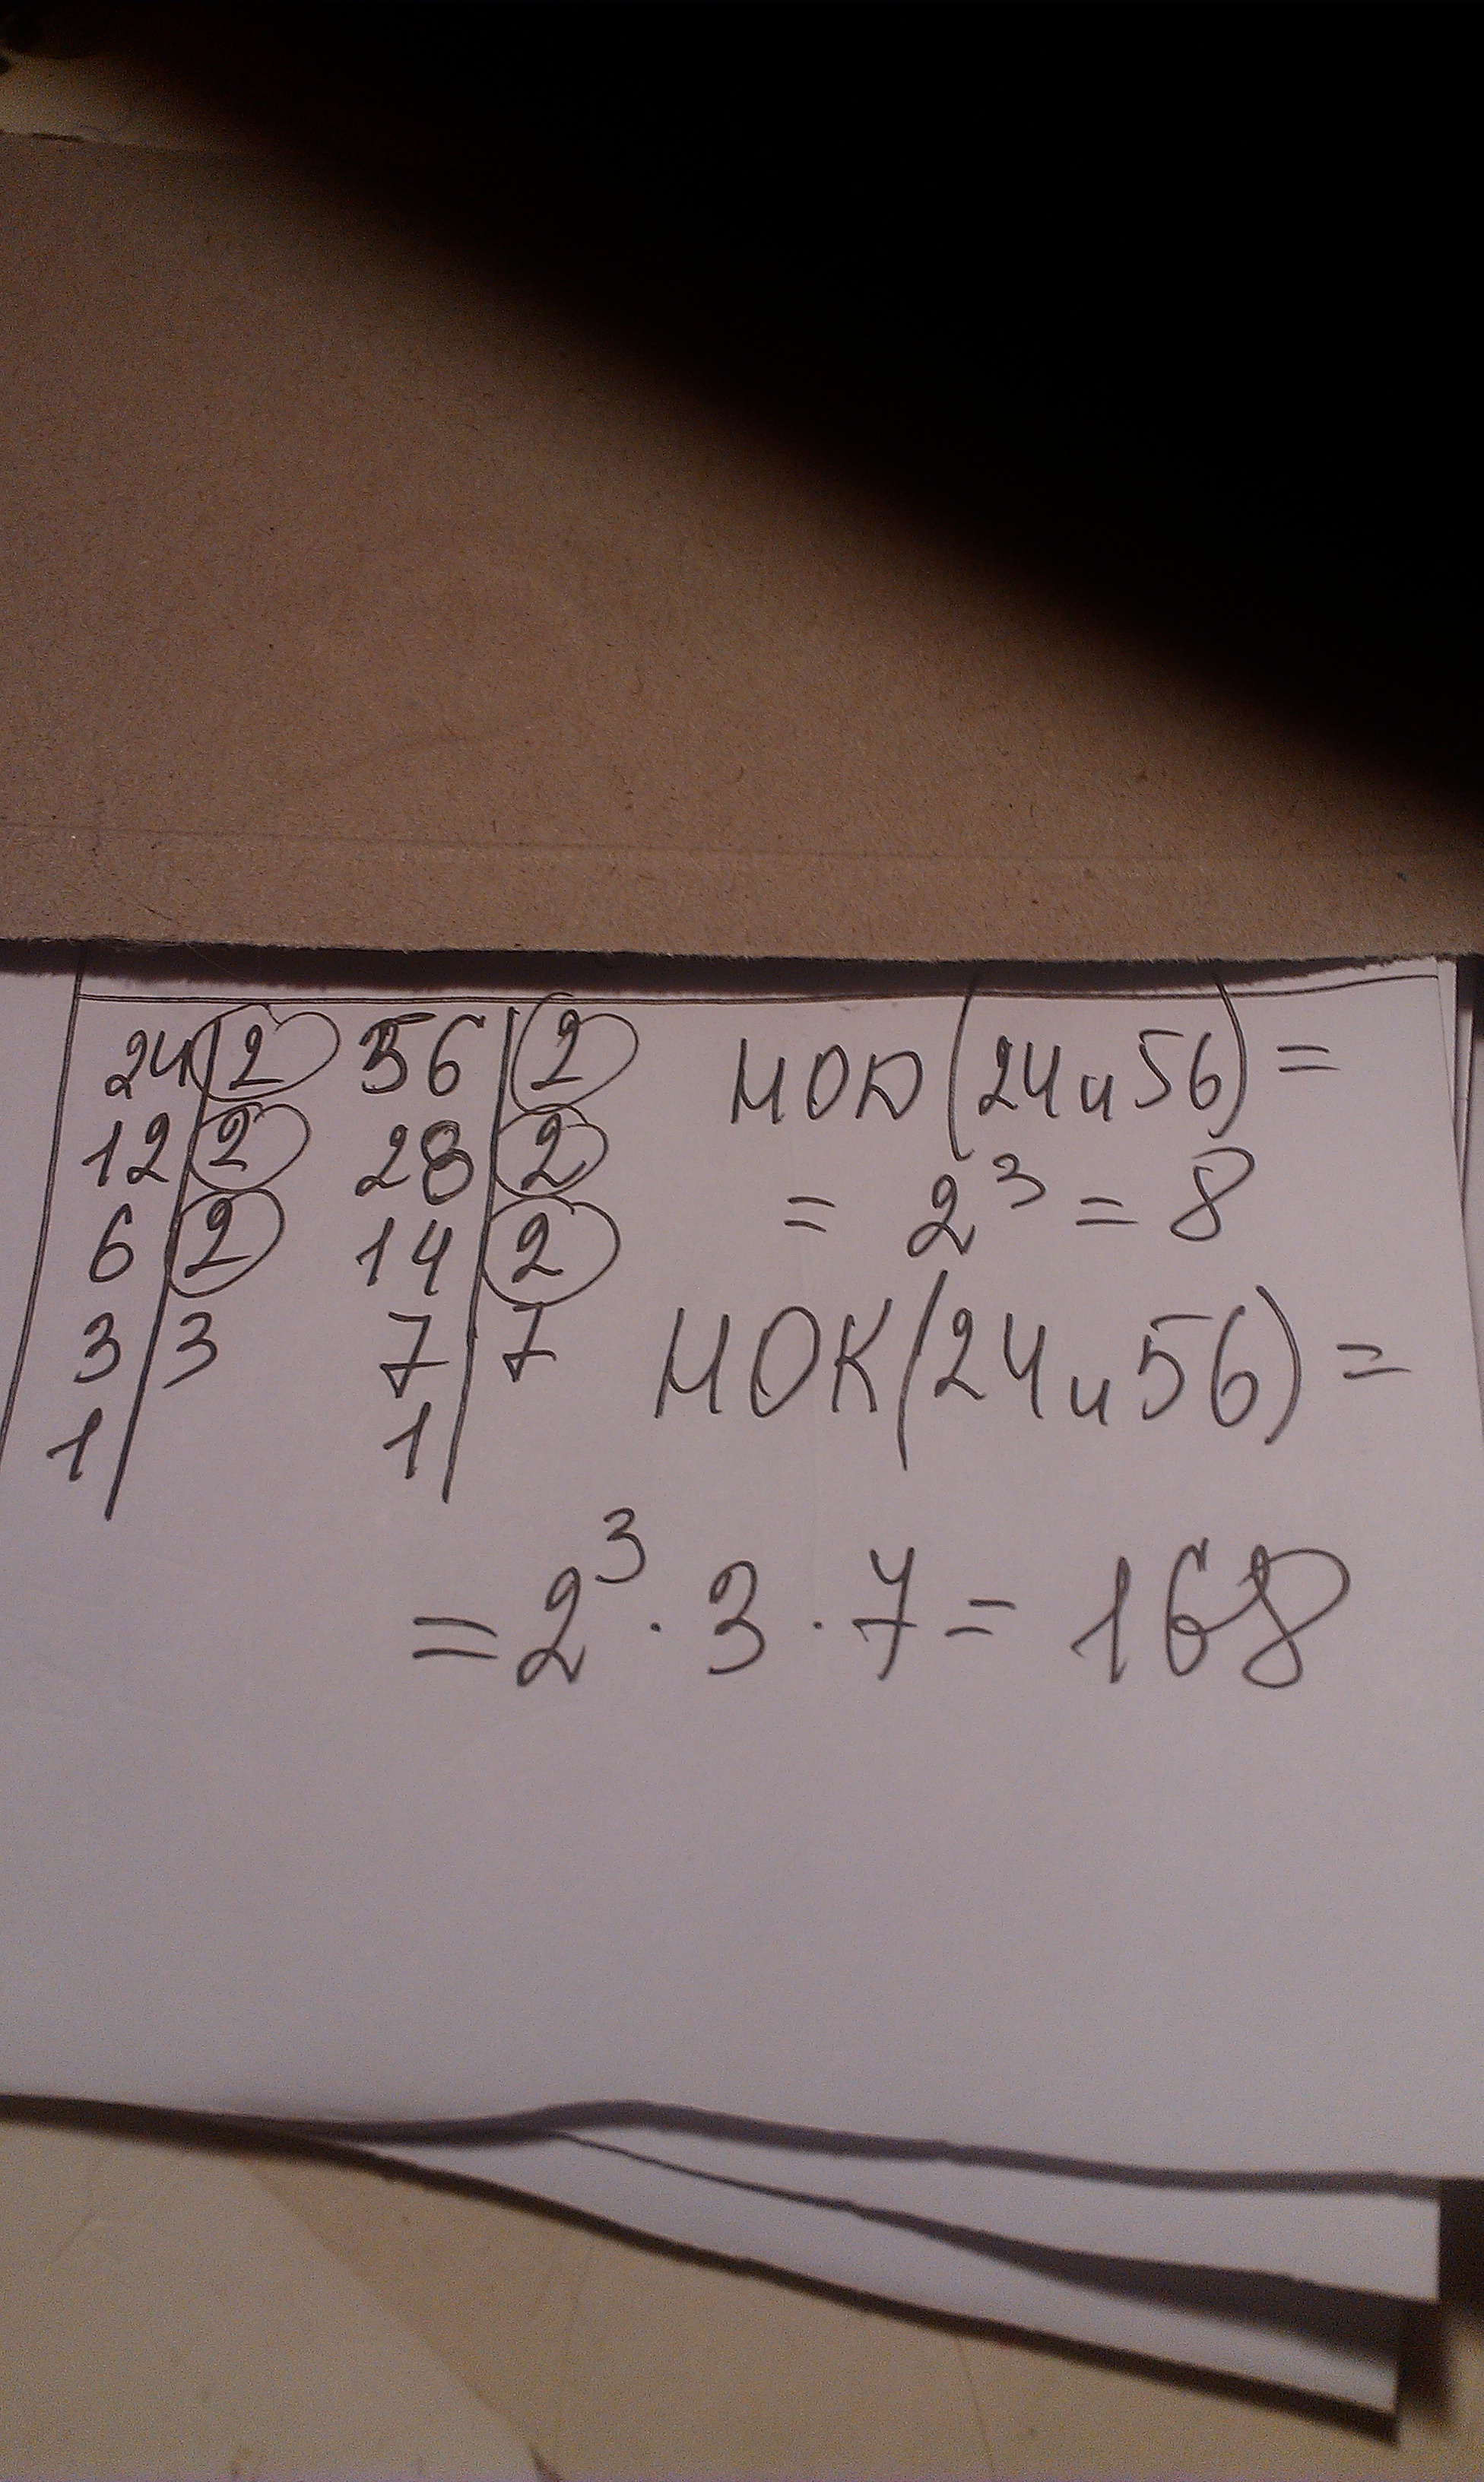 24 | 2 56 | 2 НОД (24 и 56) =
12 | 2 28 | 2 = 2³ = 8
6 | 2 14 | 2
3 | 3 7 | 7 НОК (24 и 56) =
1 | 1 |
= 2³ · 3 · 7 = 168